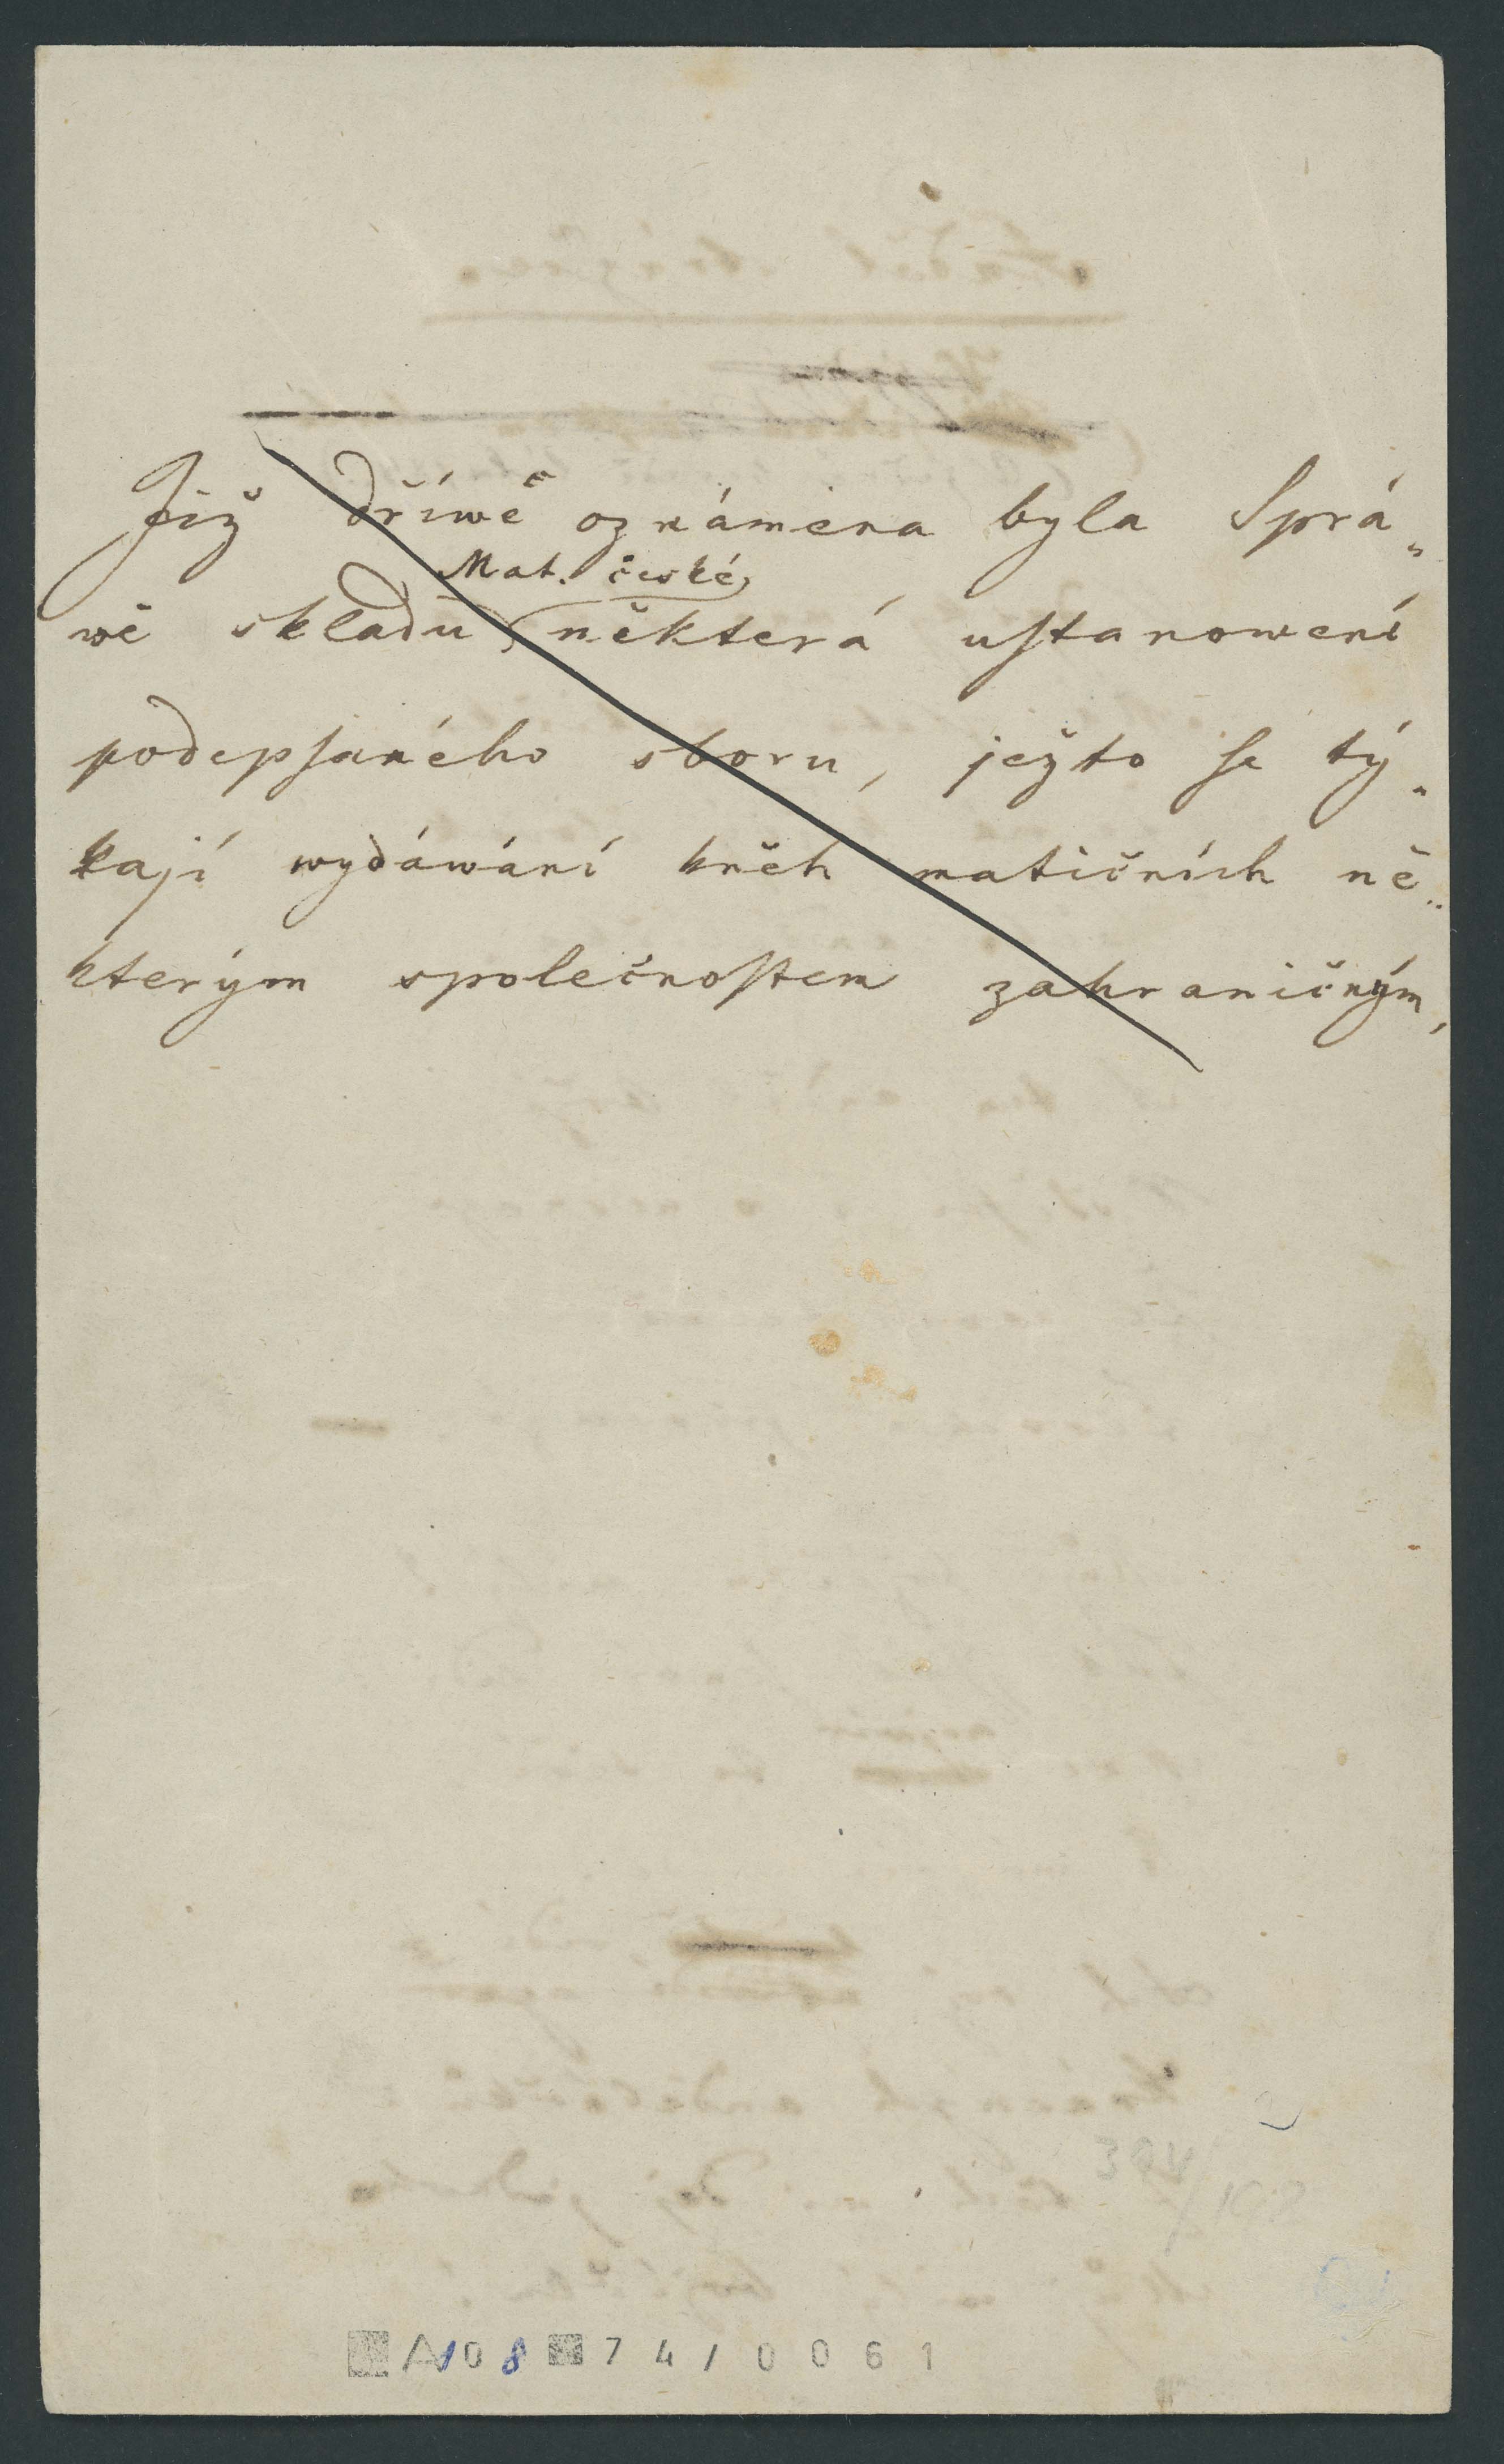 Již dříwě oznámena byla Sprá„
Mat. české,
wě skladu některá uſtanowení
podepſaného sboru, ježto ſe tý„
kají wydáwání kněh matičních ně„
kterým společnoſtem zahraničným,
A108 74/0061